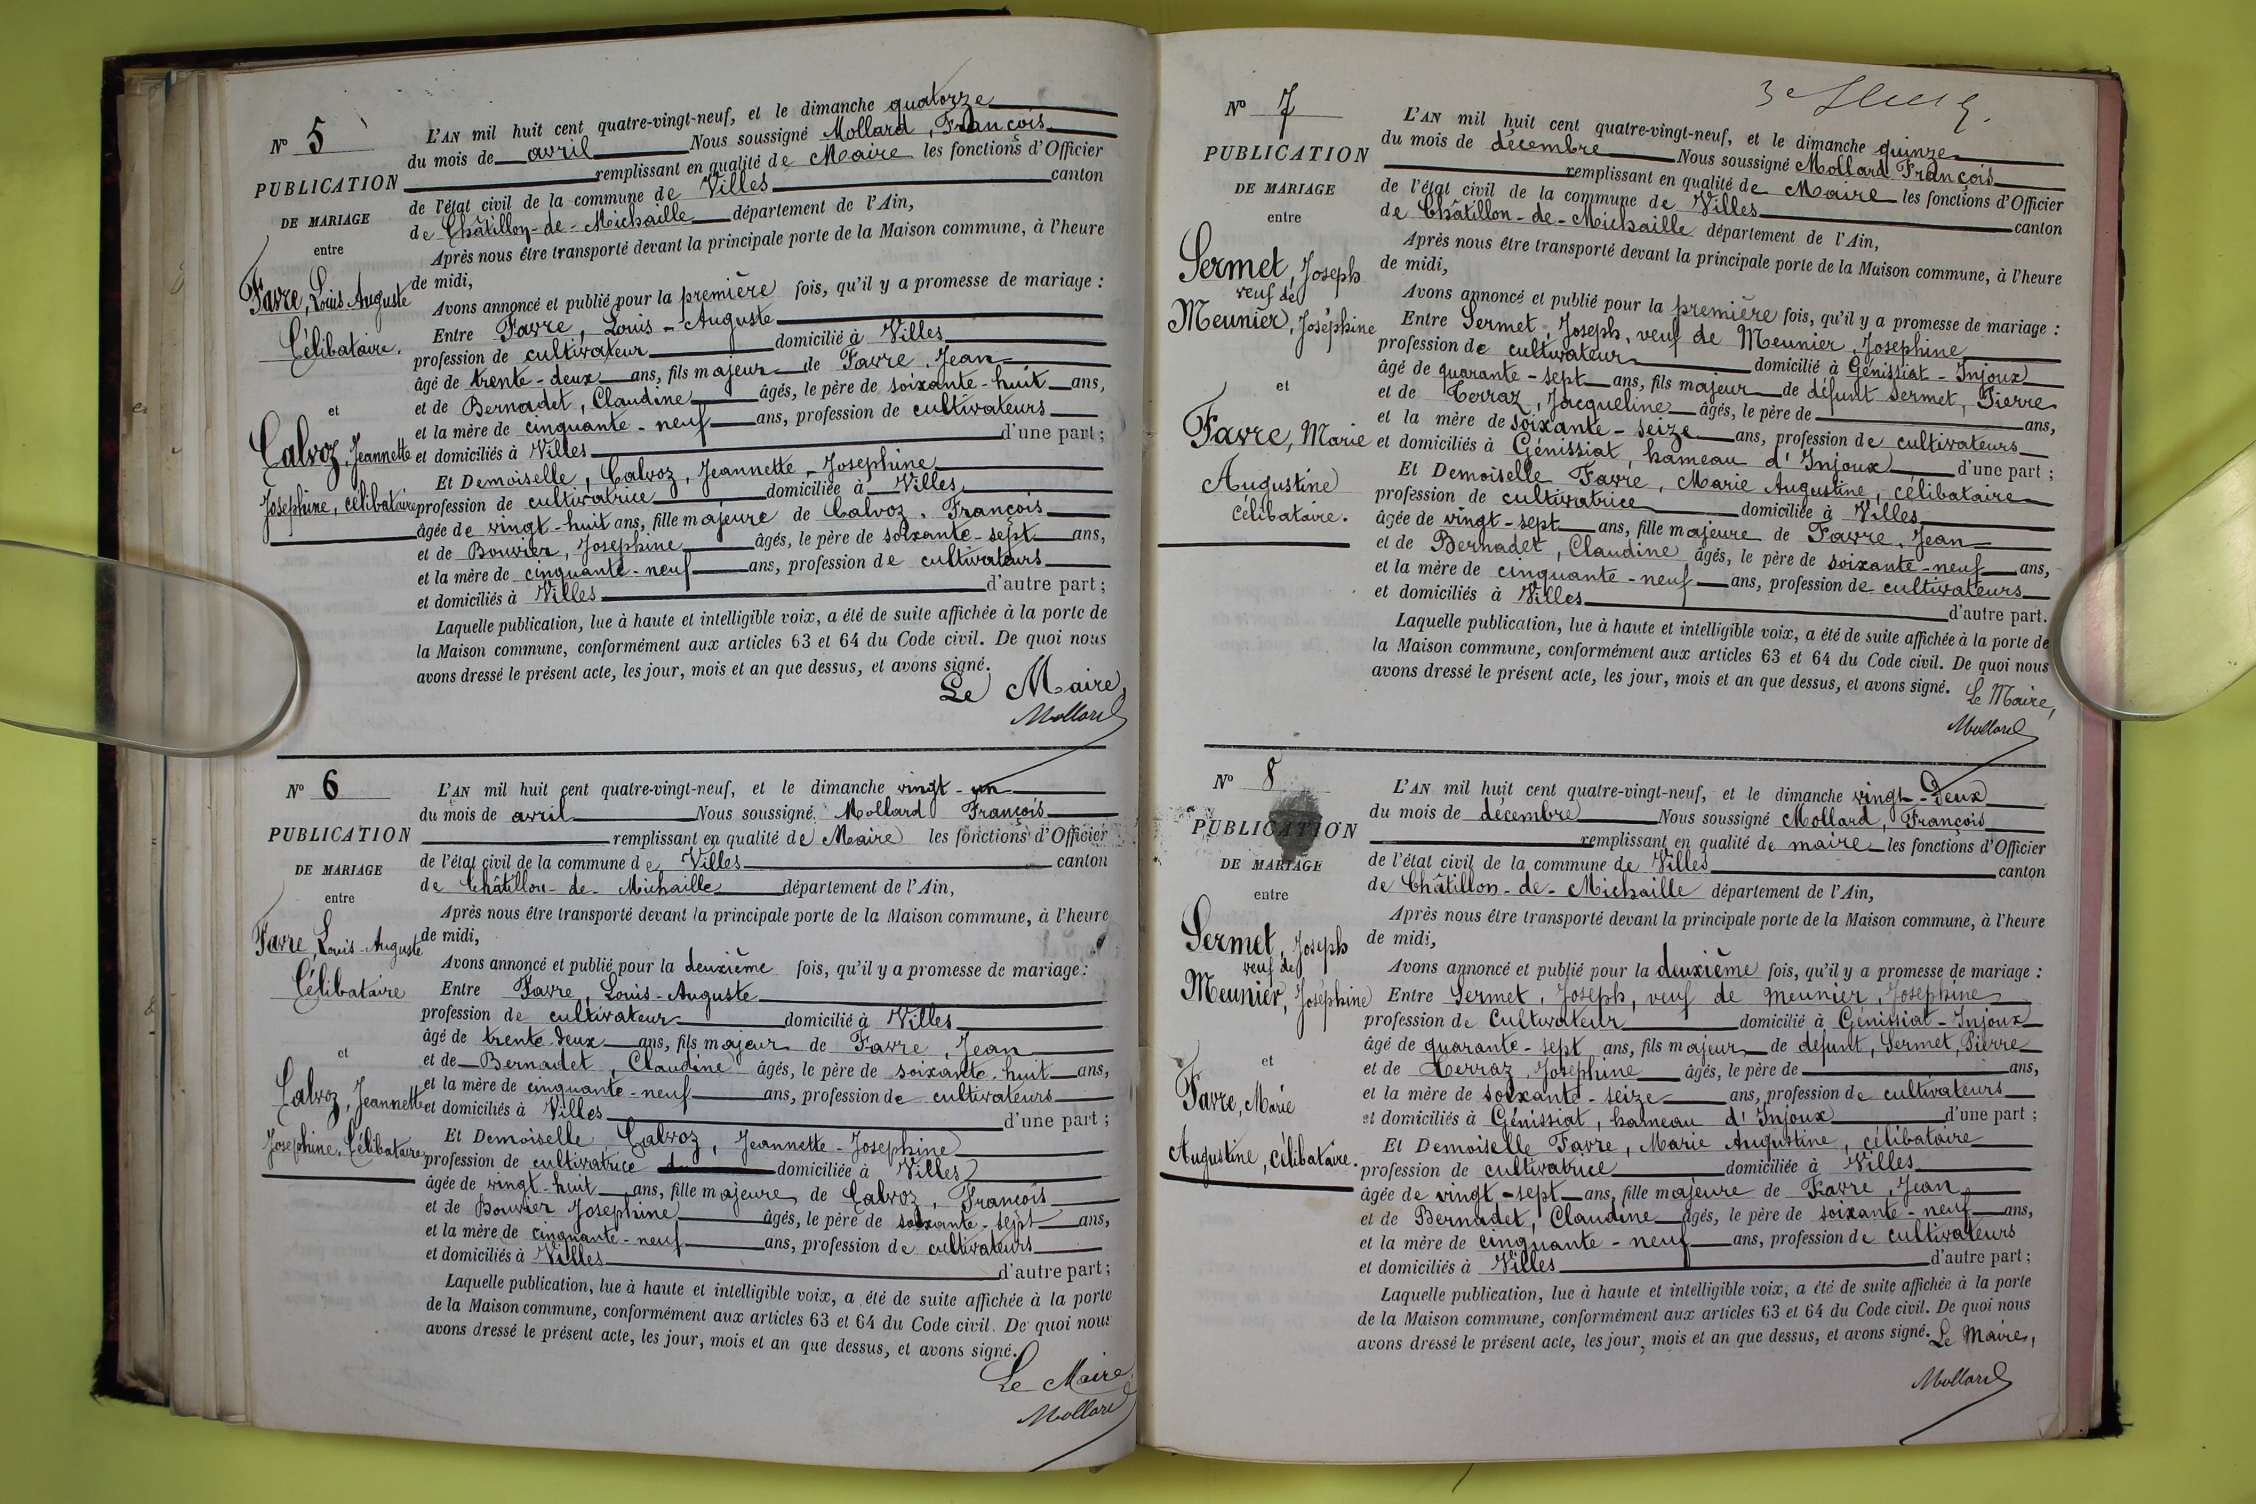 N° 5
PUBLICATION
DE MARIAGE
entre
Favre, Louis Auguste
Célibataire.
et
Calvoz, Jeannette
Josephine, célibataire
L'AN mil huit cent quatre-vingt-neuf, et le dimanche quatorze
du mois de avril Nous soussigné Mollard, François
remplissant en qualité de Maire les fonctions d'Officier
de l'état civil de la commune de Villes canton
de Châtillon-de-Michaille département de l'Ain,
Après nous être transporté devant la principale porte de la Maison commune, à l'heure
de midi,
Avons annoncé et publié pour la première fois, qu'il y a promesse de mariage :
Entre Favre, Louis-Auguste
profession de cultivateur domicilié à Villes
âgé de trente-deux ans, fils majeur de Favre, Jean
et de Bernadet, Claudine âgés, le père de soixante-huit ans,
et la mère de cinquante-neuf ans, profession de cultivateurs
et domiciliés à Villes d'une part ;
Et Demoiselle, Calvoz, Jeannette-Josephine
profession de cultivatrice domiciliée à Villes
âgée de vingt-huit ans, fille majeure de Calvoz, François
et de Bouvier, Josephine âgés, le père de soixante-sept ans,
et la mère de cinquante-neuf ans, profession de cultivateurs
et domiciliés à Villes d'autre part ;
Laquelle publication, lue à haute et intelligible voix, a été de suite affichée à la porte de
la Maison commune, conformément aux articles 63 et 64 du Code civil. De quoi nous
avons dressé le présent acte, les jour, mois et an que dessus, et avons signé.
Le Maire,
Mollard
N° 6
PUBLICATION
DE MARIAGE
entre
Favre, Louis-Auguste
Célibataire
et
Calvoz, Jeannette
Josephine, Célibataire
L'AN mil huit cent quatre-vingt-neuf, et le dimanche vingt-un
du mois de avril Nous soussigné, Mollard François
remplissant en qualité de Maire les fonctions d'Officier
de l'état civil de la commune de Villes canton
de Châtillon-de-Michaille département de l'Ain,
Après nous être transporté devant la principale porte de la Maison commune, à l'heure
de midi,
Avons annoncé et publié pour la deuxième fois, qu'il y a promesse de mariage :
Entre Favre, Louis-Auguste
profession de cultivateur domicilié à Villes
âgé de trente-deux ans, fils majeur de Favre, Jean
et de Bernadet, Claudine âgés, le père de soixante-huit ans,
et la mère de cinquante-neuf ans, profession de cultivateurs
et domiciliés à Villes d'une part ;
Et Demoiselle, Calvoz, Jeannette-Josephine
profession de cultivatrice domiciliée à Villes
âgée de vingt-huit ans, fille majeure de Calvoz, François
et de Bouvier Josephine âgés, le père de soixante-sept ans,
et la mère de cinquante-neuf ans, profession de cultivateurs
et domiciliés à Villes d'autre part ;
Laquelle publication, lue à haute et intelligible voix, a été de suite affichée à la porte
de la Maison commune, conformément aux articles 63 et 64 du Code civil. De quoi nous
avons dressé le présent acte, les jour, mois et an que dessus, et avons signé.
Le Maire
Mollard
N° 7
PUBLICATION
DE MARIAGE
entre
Sermet, Joseph
veuf de
Meunier, Joséphine
et
Favre, Marie
Augustine
célibataire.
L'AN mil huit cent quatre-vingt-neuf, et le dimanche quinze
du mois de décembre Nous soussigné Mollard François
remplissant en qualité de Maire les fonctions d'Officier
de l'état civil de la commune de Villes canton
de Châtillon-de-Michaille département de l'Ain,
Après nous être transporté devant la principale porte de la Maison commune, à l'heure
de midi,
Avons annoncé et publié pour la première fois, qu'il y a promesse de mariage :
Entre Sermet, Joseph, veuf de Meunier, Josephine
profession de cultivateur domicilié à Génissiat-Injoux
âgé de quarante-sept ans, fils majeur de défunt Sermet, Pierre
et de Terraz, Jacqueline âgés, le père de ans,
et la mère de soixante-seize ans, profession de cultivateurs
et domiciliés à Génissiat, hameau d'Injoux d'une part ;
Et Demoiselle Favre, Marie Augustine, célibataire
profession de cultivatrice domiciliée à Villes
âgée de vingt-sept ans, fille majeure de Favre, Jean
et de Bernadet, Claudine âgés, le père de soixante-neuf ans,
et la mère de cinquante-neuf ans, profession de cultivateurs
et domiciliés à Villes d'autre part.
Laquelle publication, lue à haute et intelligible voix, a été de suite affichée à la porte de
la Maison commune, conformément aux articles 63 et 64 du Code civil. De quoi nous
avons dressé le présent acte, les jour, mois et an que dessus, et avons signé.
Le Maire,
Mollard
N° 8
PUBLICATION
DE MARIAGE
entre
Sermet, Joseph
veuf de
Meunier, Joséphine
et
Favre, Marie
Augustine, célibataire.
L'AN mil huit cent quatre-vingt-neuf, et le dimanche vingt-Deux
du mois de décembre Nous soussigné Mollard, François
remplissant en qualité de maire les fonctions d'Officier
de l'état civil de la commune de Villes canton
de Châtillon-de-Michaille département de l'Ain,
Après nous être transporté devant la principale porte de la Maison commune, à l'heure
de midi,
Avons annoncé et publié pour la deuxième fois, qu'il y a promesse de mariage :
Entre Sermet, Joseph, veuf de meunier, Josephine
profession de Cultivateur domicilié à Génissiat-Injoux
âgé de quarante-sept ans, fils majeur de défunt, Sermet, Pierre
et de Terraz, Josephine âgés, le père de ans,
et la mère de soixante-seize ans, profession de cultivateurs
et domiciliés à Génissiat, hameau d'Injoux d'une part ;
Et Demoiselle Favre, Marie Augustine, célibataire
profession de cultivatrice domiciliée à Villes
âgée de vingt-sept ans, fille majeure de Favre, Jean
et de Bernadet, Claudine âgés, le père de soixante-neuf ans,
et la mère de cinquante-neuf ans, profession de cultivateurs
et domiciliés à Villes d'autre part ;
Laquelle publication, lue à haute et intelligible voix, a été de suite affichée à la porte
de la Maison commune, conformément aux articles 63 et 64 du Code civil. De quoi nous
avons dressé le présent acte, les jour, mois et an que dessus, et avons signé.
Le Maire,
Mollard